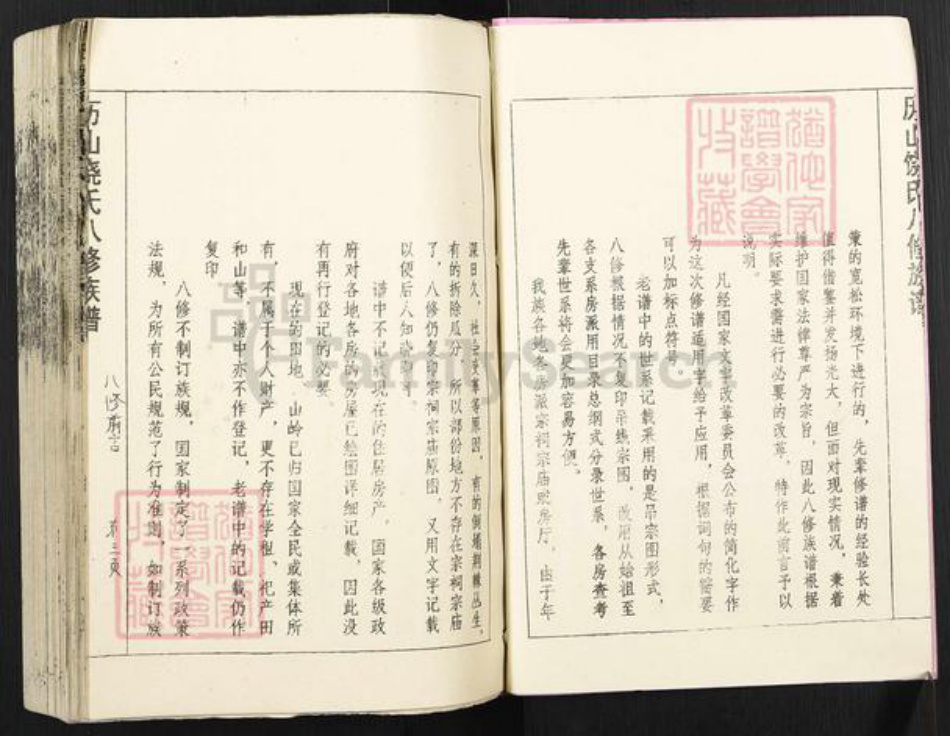 历山饶氏八修族谱
策的宽松环境下进行的，先辈修谱的经验长处
值得借鉴并发扬光大，但面对现实情况，兼着
维护国家法律尊严为宗旨，因此八修族谱根据
实际要求需进行必要的改革，特作此前言予以
说明。
凡经国家文字改革委员会公布的简化字作
为这次修谱适用字给予应用，根据词句的需要
可以加标点符号。
老谱中的世系记载采用的是吊宗图形式，
八修根据情况不复印吊线宗图，改用从始祖至
各支系房派用目录总纲式分录世系，各房查考
先辈世系将会更加容易方便。
我族各地各房派宗祠宗庙取房厅，由于年
深日久，社会变革等原因，有的倒塌荆棘丛生，
有的拆除瓜分，所以部份地方不存在宗祠宗庙
了，八修仍复印宗祠宗庙原图，又用文字记载
以便后人知
谱中不记载现在的住居房产，国家各级政
府对各地各房的房屋已绘图详细记载，因此没
有再行登记的必要。
现在的田地、山岭已归国家全民或集体所
有，不属于个人财产，更不存在学租、祀产田
和山等，谱中亦不作登记，老谱中的记载仍作
复印
八修不制订族规，国家制定了一系列政策
法规，为所有公民规范了行为准则，如制订族
八修前言
第三页
历山饶氏八修族谱
猶他家譜學會收藏
猶他家譜學會收藏
FamilySearch